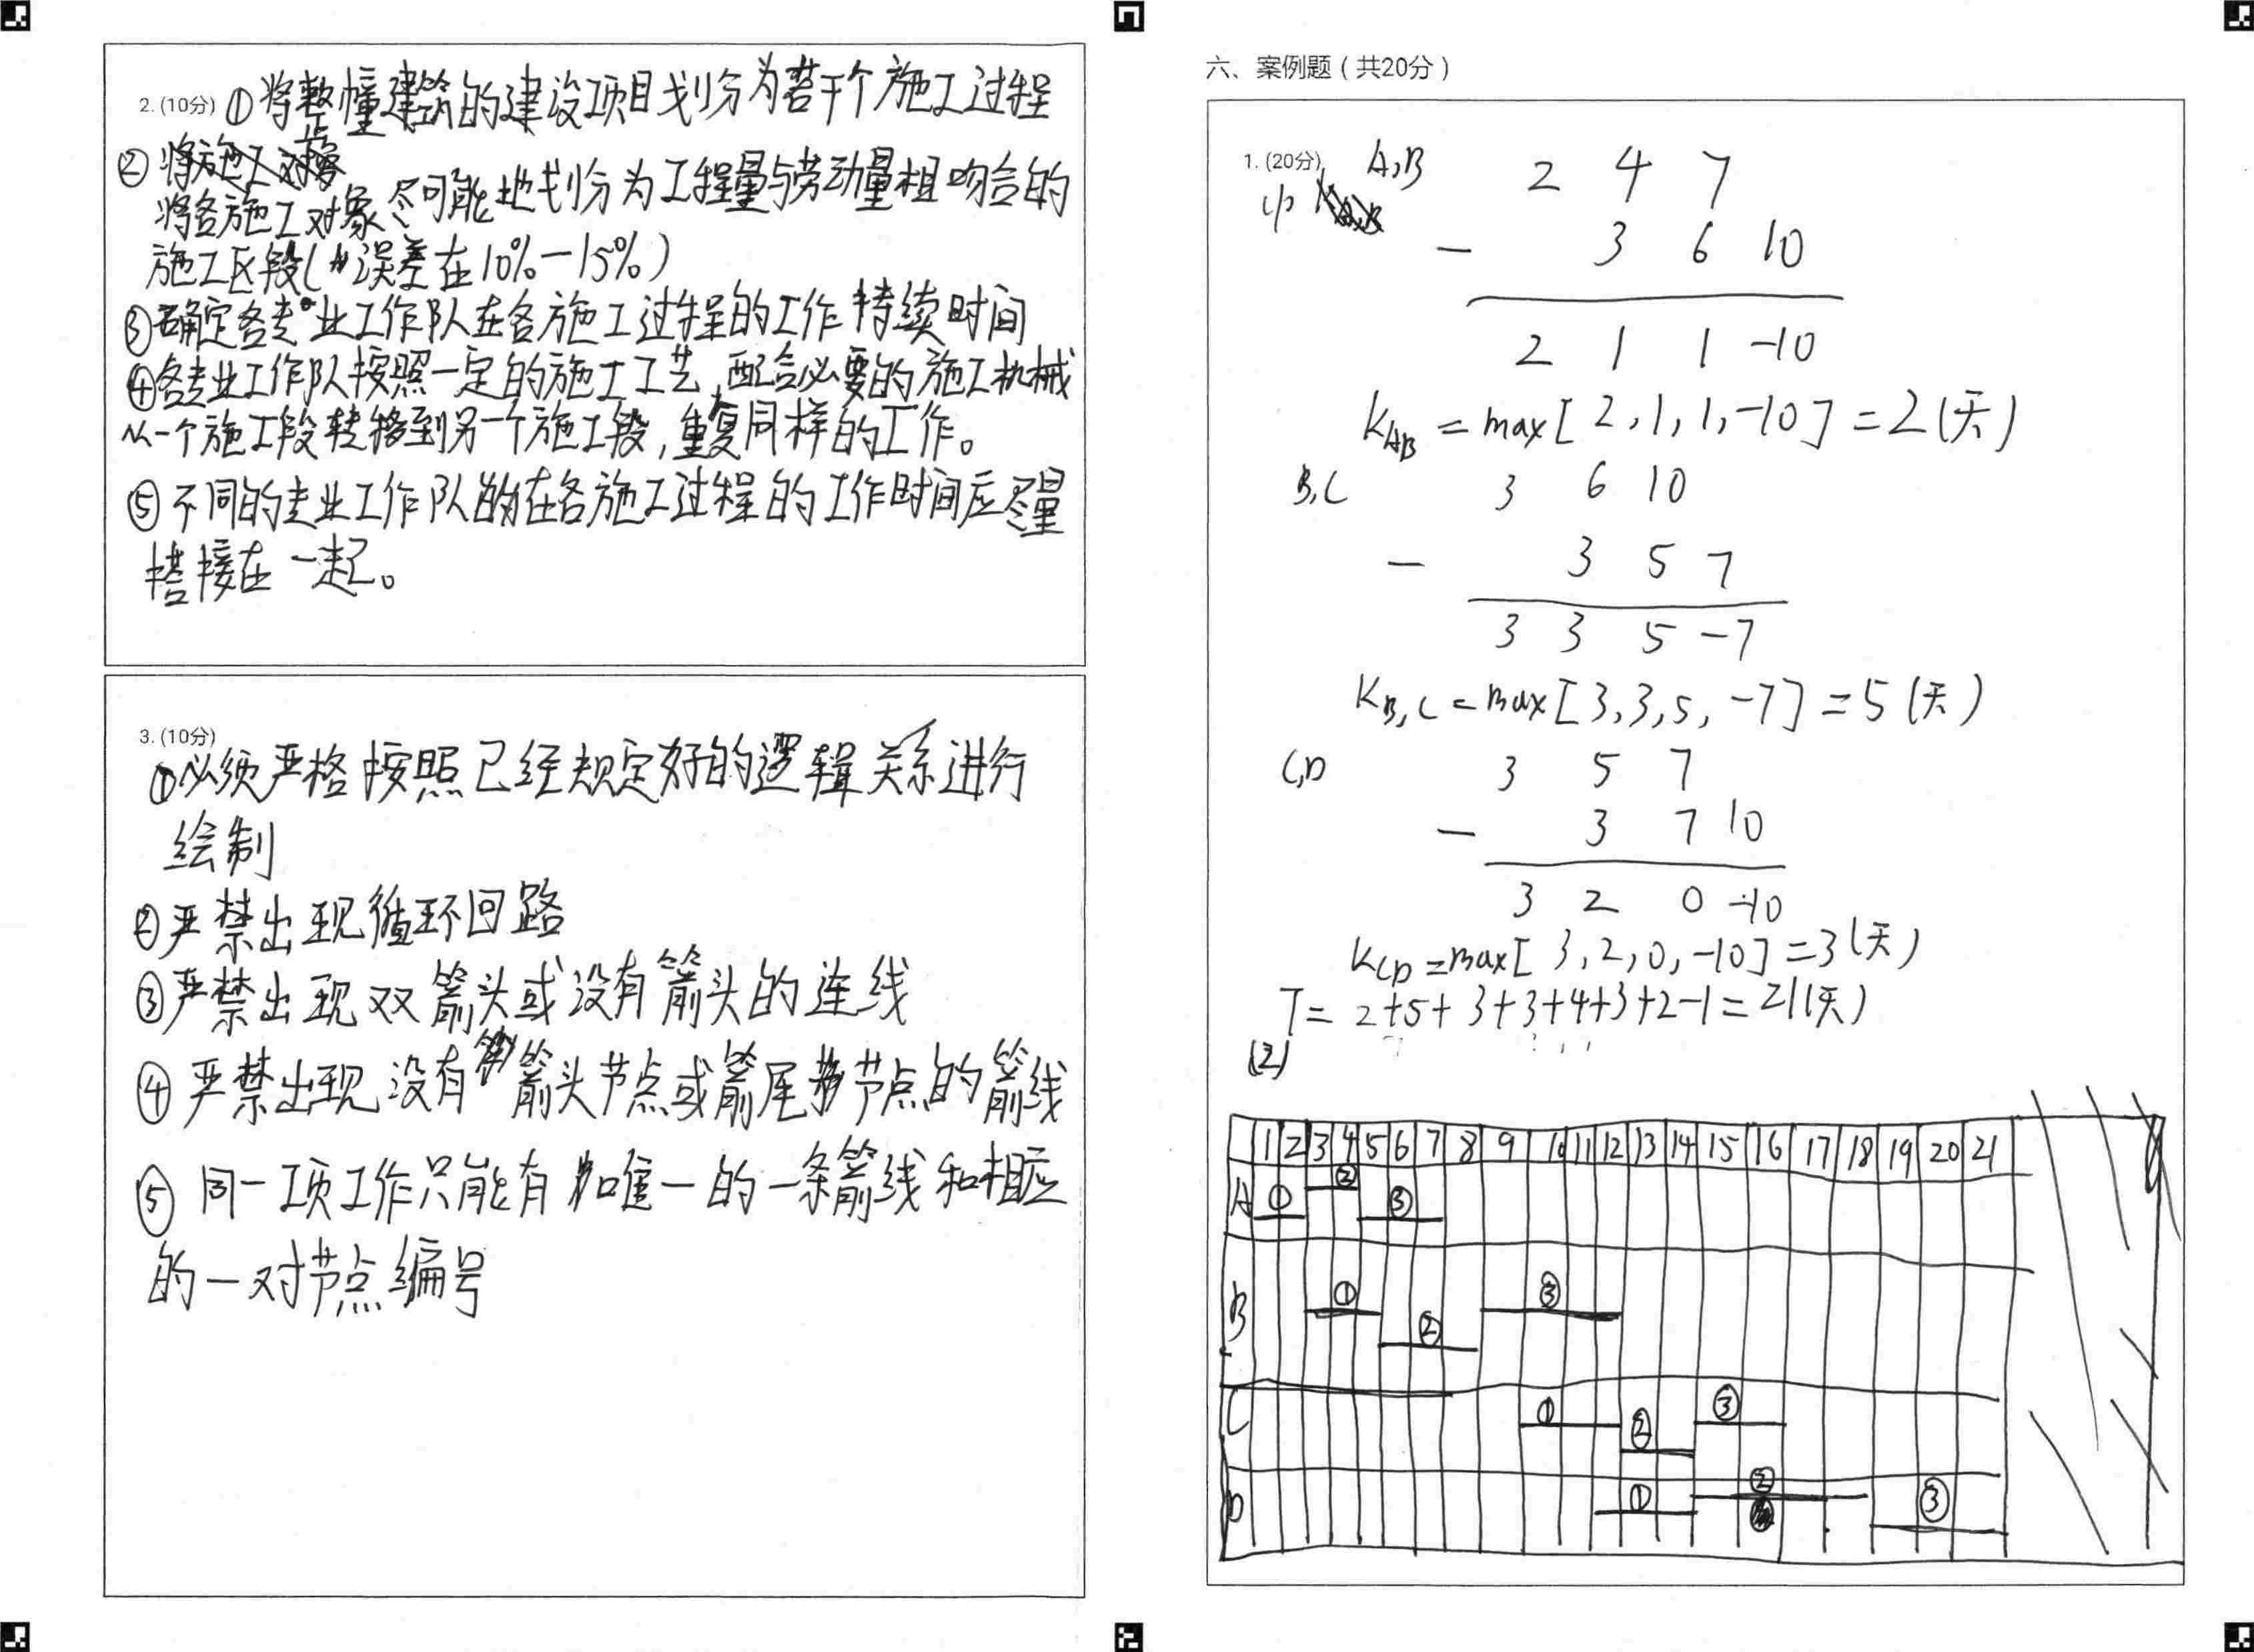 2. (10分) ①将整幢建筑的建设项目划分为若干个施工过程
②
将各施工对象尽可能地划分为工程量与劳动量相吻合的
施工区段(误差在10%-15%)
③确定各专业工作队在各施工过程的工作持续时间
④各专业工作队按照一定的施工工艺,配合必要的施工机械
从一个施工段转移到另一个施工段,重复同样的工作。
⑤不同的专业工作队在各施工过程的工作时间应尽量
搭接在一起。
3. (10分)
①必须严格按照已经规定好的逻辑关系进行
绘制
②严禁出现循环回路
③严禁出现双箭头或没有箭头的连线
④严禁出现没有箭头节点或箭尾节点的箭线
⑤同一项工作只能有唯一的一条箭线和相应
的一对节点编号
六、案例题(共20分)
1. (20分) A,B 2 4 7
(1)
- 3 6 10
2 1 1 -10
K_AB = max[2,1,1,-10] = 2(天)
B,C 3 6 10
- 3 5 7
3 3 5 -7
K_B,C = max[3,3,5,-7] = 5(天)
C,D 3 5 7
- 3 7 10
3 2 0 -10
K_CD = max[3,2,0,-10] = 3(天)
T = 2+5+3+3+4+3+2-1 = 21(天)
(2)
1 2 3 4 5 6 7 8 9 10 11 12 13 14 15 16 17 18 19 20 21
A ① ② ③
B ① ② ③
C ① ② ③
D ① ② ③